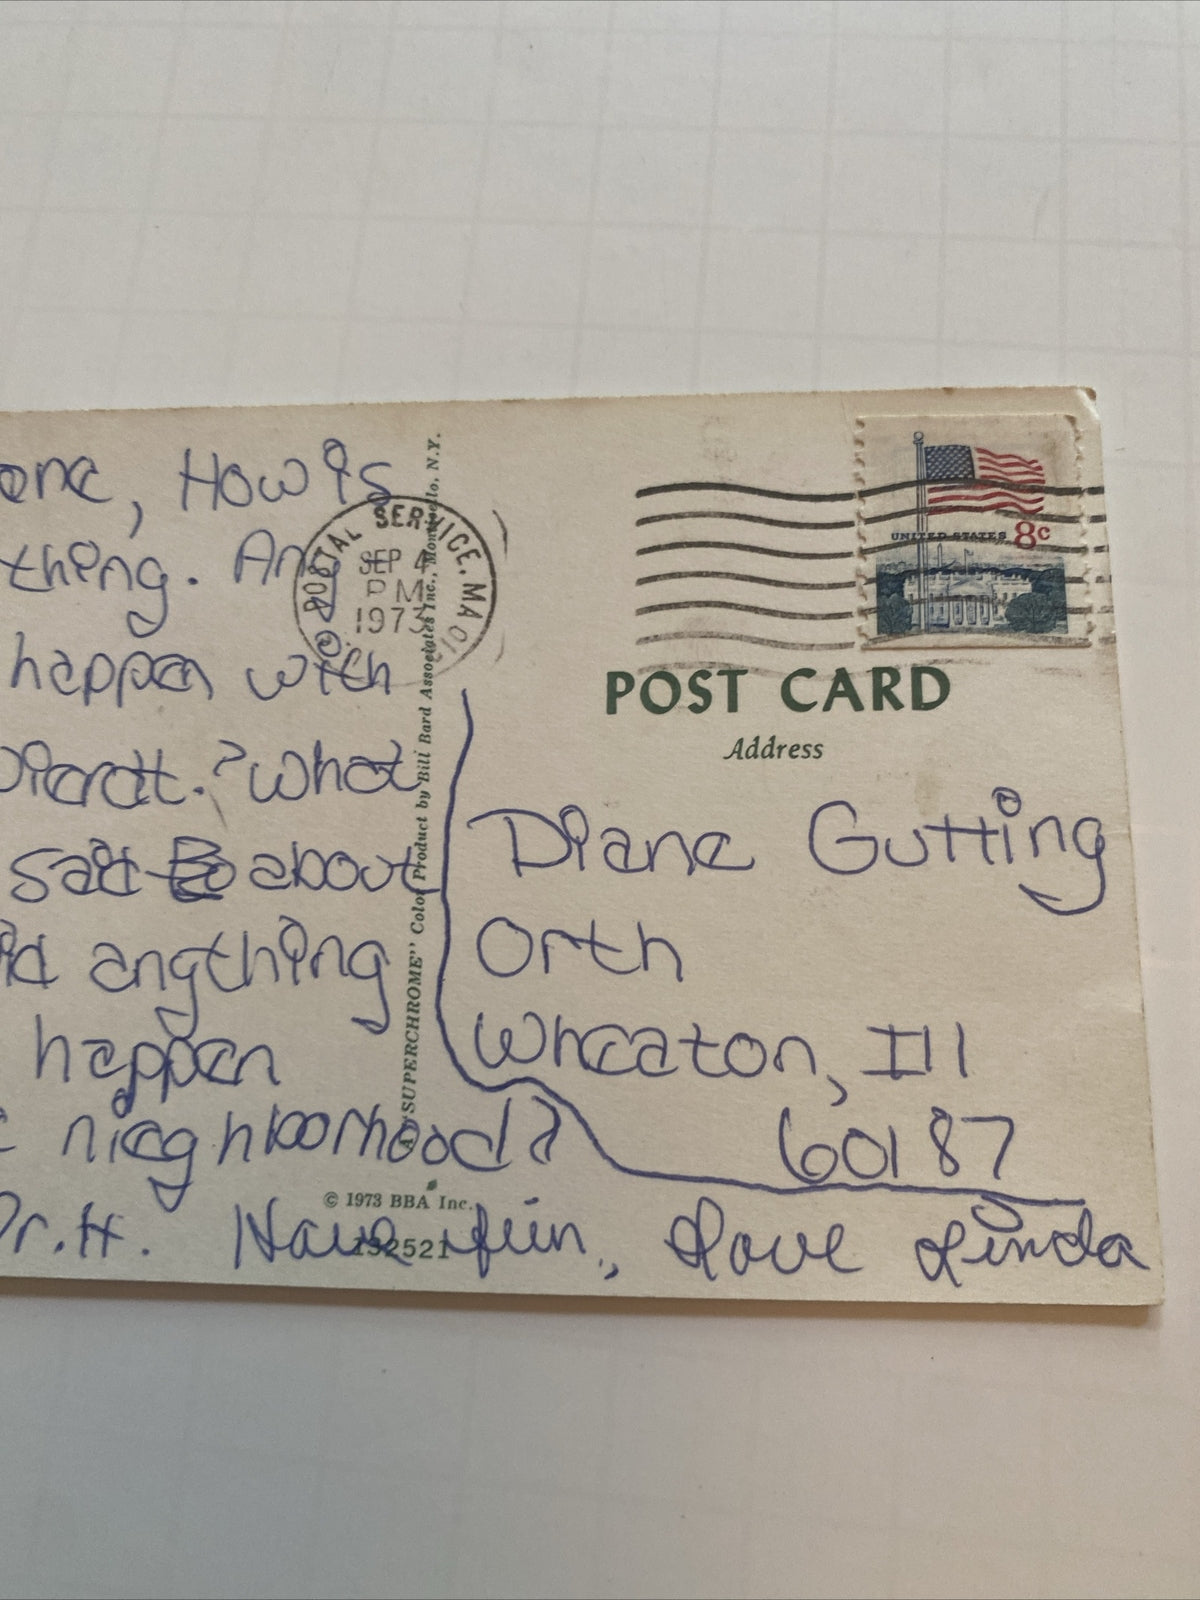 How is
thing. Any
happen with
? What
said about
anything
happen
nieghborhood?
Dr. H. Have fun, Love Linda
POSTAL SERVICE, MA
SEP 4
PM
1973
A "SUPERCHROME" Color Product by Bill Bard Associates Inc., Monticello, N.Y.
© 1973 BBA Inc.
132521
UNITED STATES 8c
POST CARD
Address
Diane Gutting
Orth
Wheaton, Ill
60187